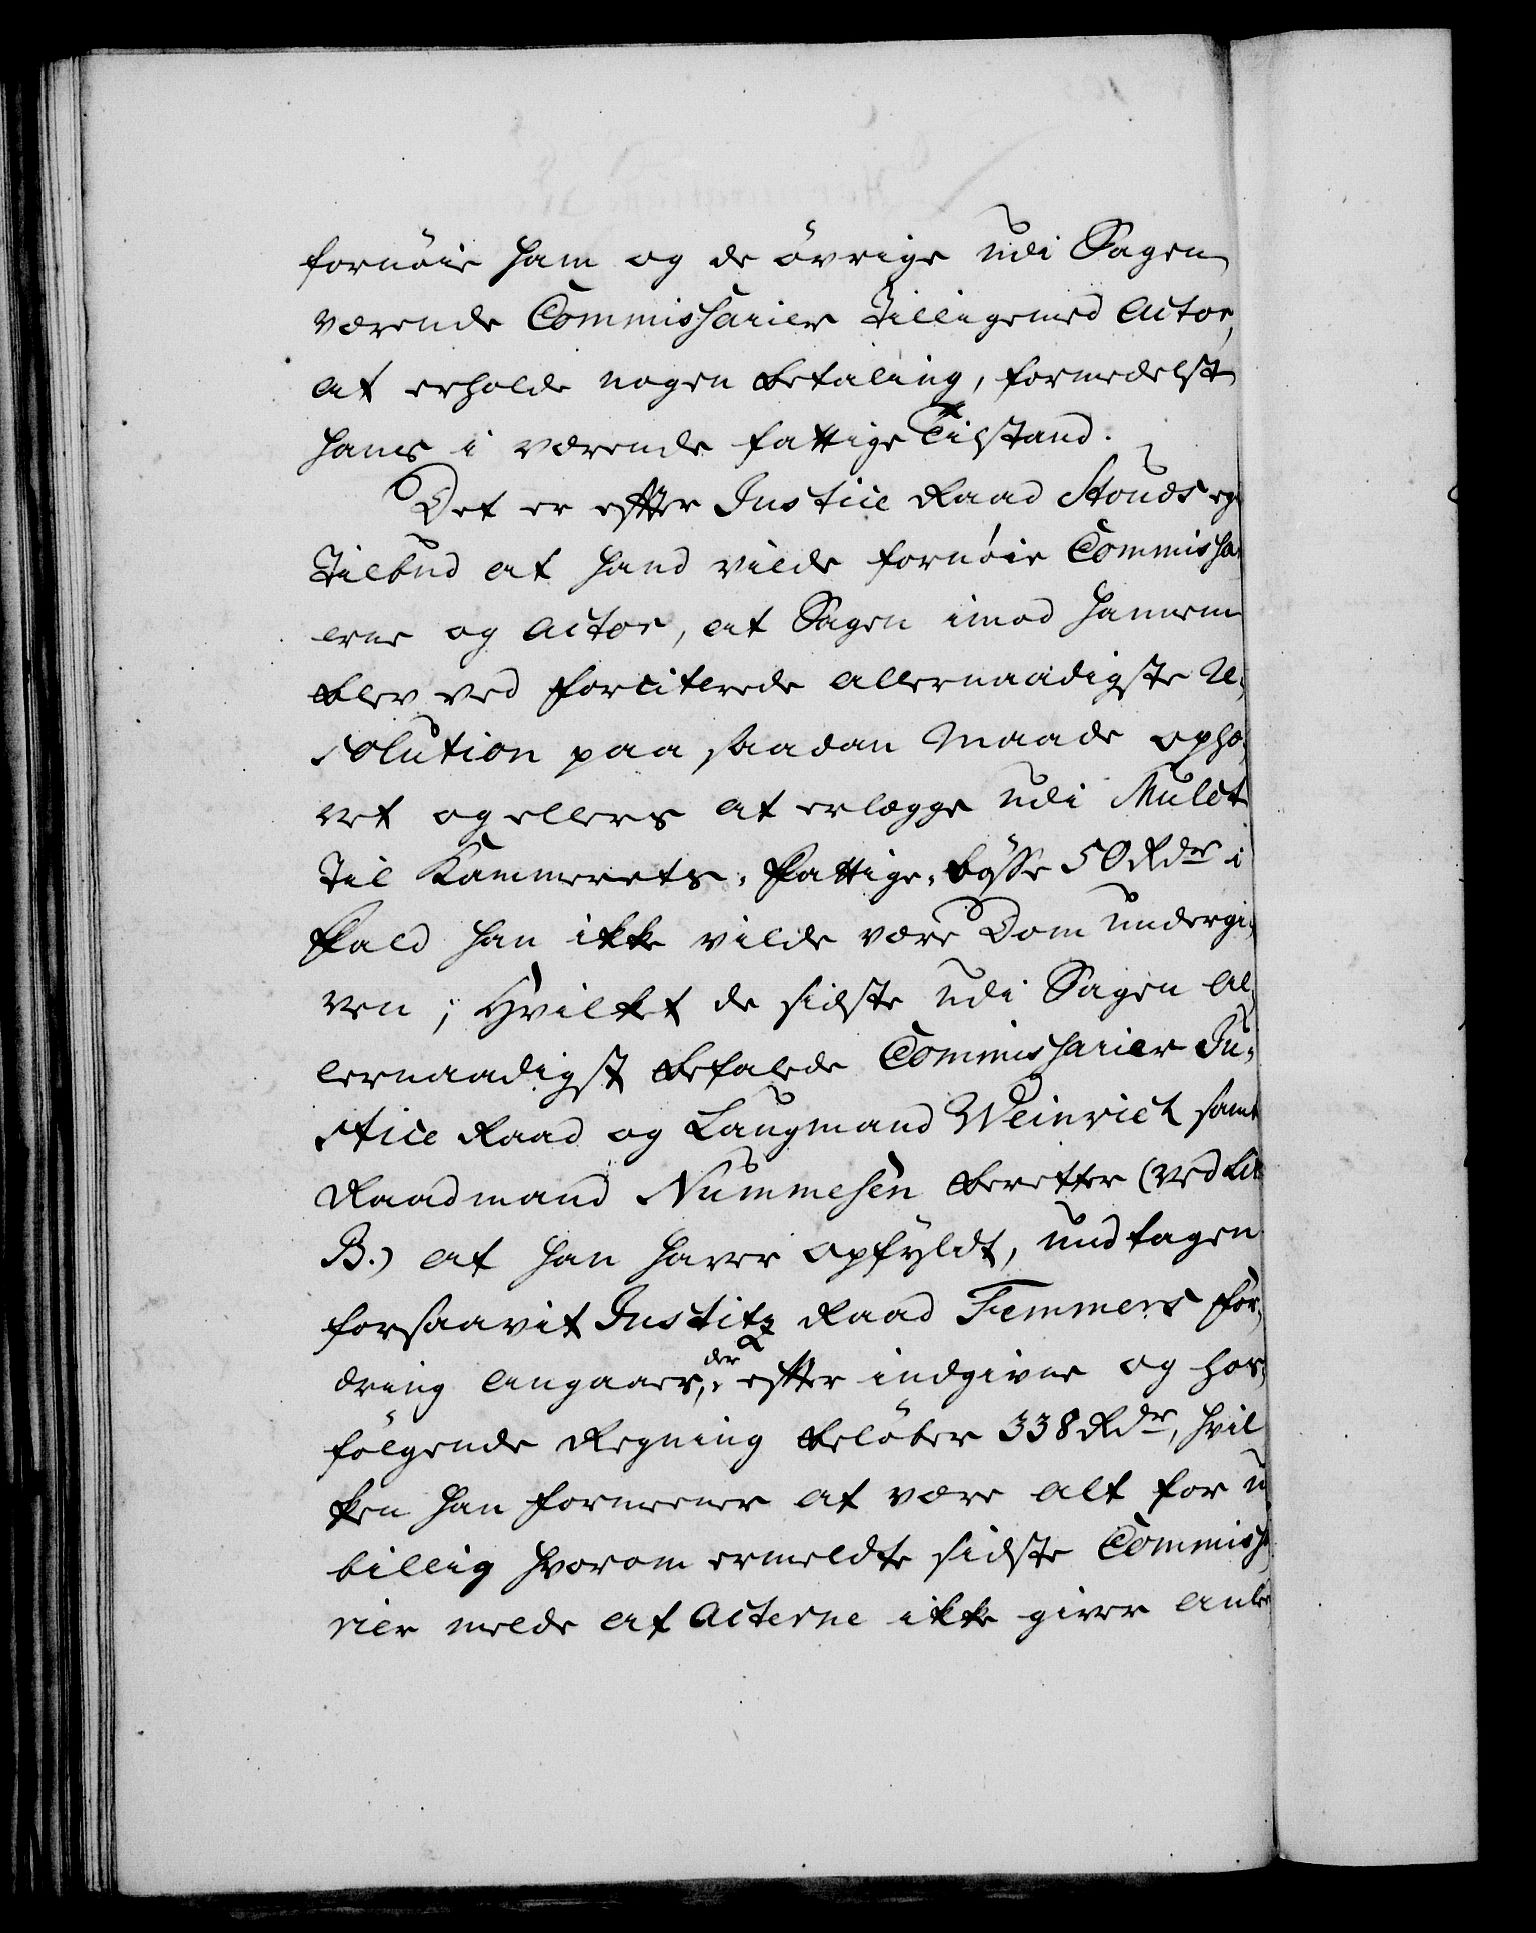 fornøie ham og de øvrige udi Sagen
værende Commissarier tilligemed Actor,
at erholde nogen betaling, formedelst
hans i værende fattige Tilstand.
Det er efter Justice Raad Stouds eg
Tilbud at hand vilde fornøie Commissa
erne og Actor, at Sagen imod hannem
blev ved forciterede allernaadigste Re,
solution paa saadan Maade ophæ,
vet og ellers at erlægge udi Mulct
til Kammerets, Fattige, bøsse 50 Rdr i
Fald han ikke vilde være Dom undergi,
ven; Hvilket de sidste udi Sagen Al,
lernaadigst befalede Commissarier Ju,
stice Raad og Laugmand Weinrich samt
Raadmand Nummesen beretter (ved Lit
B.) at han haver opfyldt, undtagen
forsaavit Justitz Raad Femmers for,
dring angaaer, der efter indgivne og hos,
følgende Regning beløber 338 Rdr, hvil
ken han formeener at være alt for u
billig hvorom ermeldte sidste Commissa
rier melde at Acterne ikke giver anle